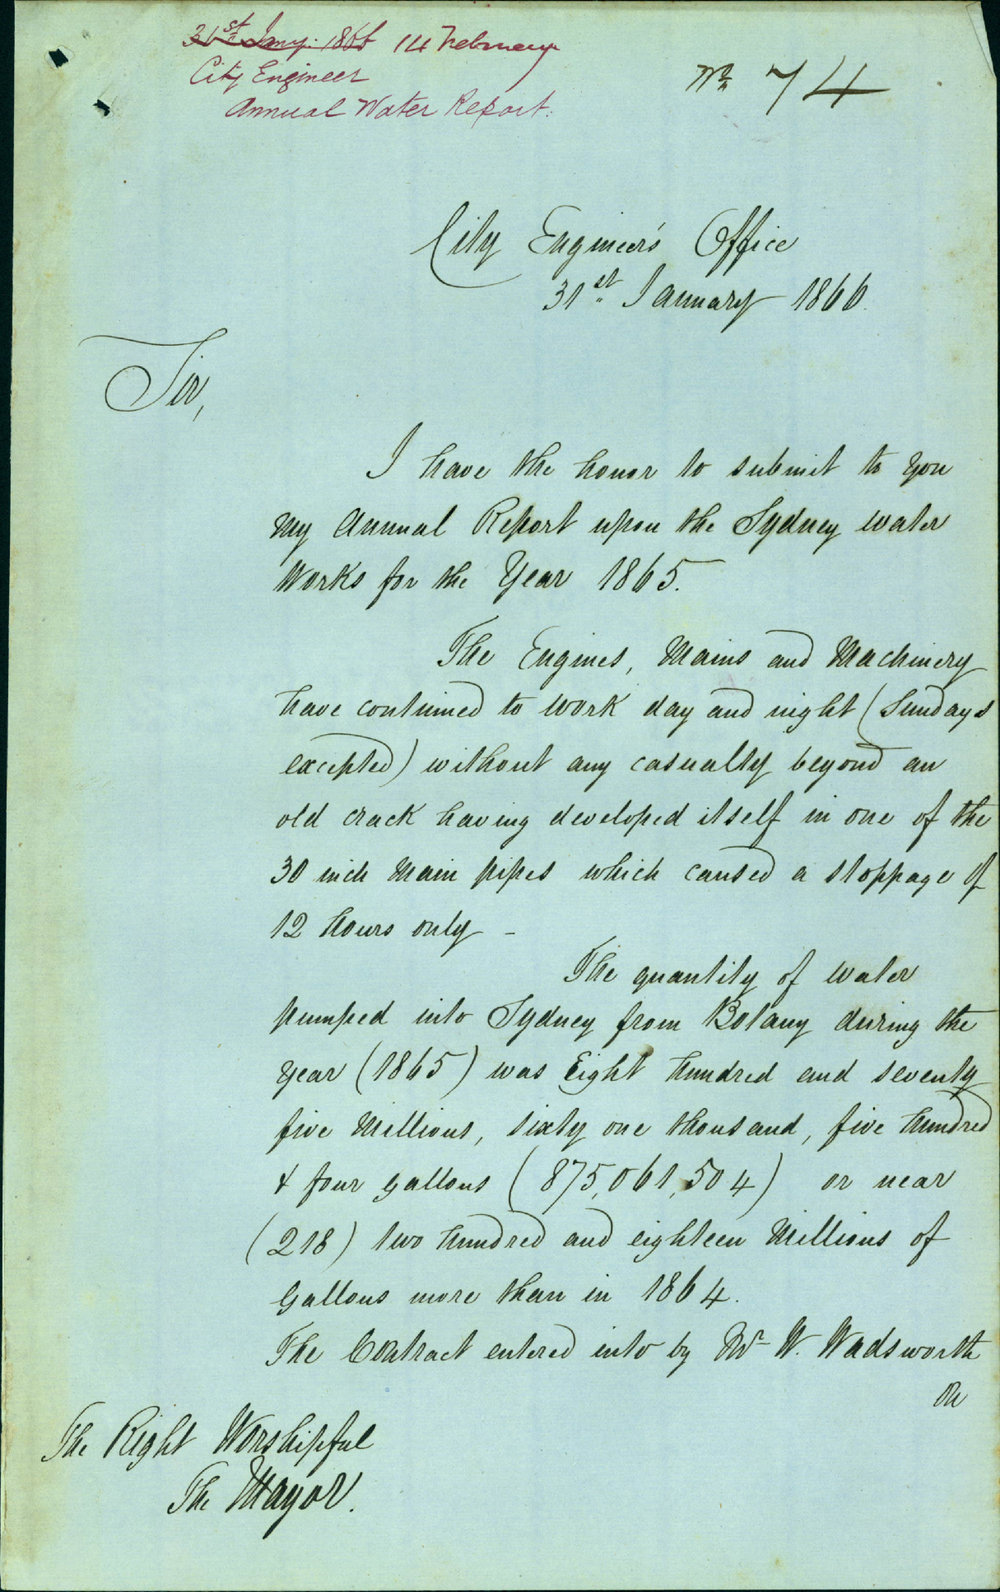 31st Jany. 1866 14 February
City Engineer
Annual Water Report.
No 74
City Engineer's Office
31st January 1866.
Sir,
I have the honor to submit to you
my Annual Report upon the Sydney water
Works for the Year 1865.
The Engines, Mains and Machinery
have continued to work day and night (Sundays
excepted) without any casualty beyond an
old crack having developed itself in one of the
30 inch Main pipes which caused a stoppage of
12 hours only -
The quantity of water
pumped into Sydney from Botany during the
Year (1865) was Eight hundred and seventy
five Millions, sixty one thousand, five hundred
& four gallons (875,061,504) or near
(218) two hundred and eighteen Millions of
Gallons more than in 1864.
The Contract entered into by Mr W. Wadsworth
on
The Right Worshipful
The Mayor.